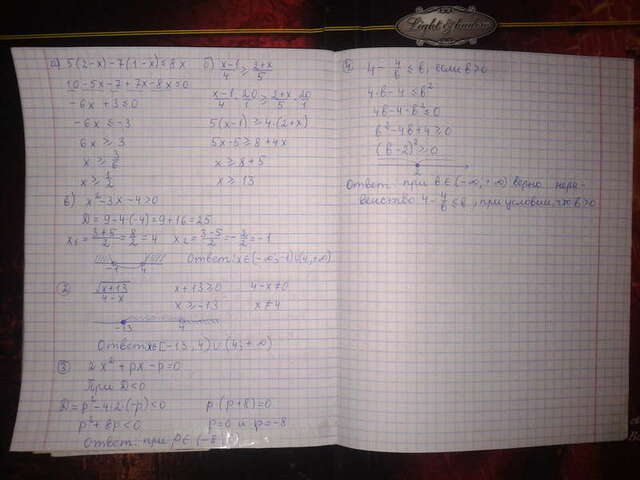 Light & shadow
а) 5(2-x)-7(1-x)≤8x
10-5x-7+7x-8x≤0
-6x+3≤0
-6x≤-3
6x≥3
x≥3/6
x≥1/2
б) x-1/4 ≥ 2+x/5
x-1/4 · 20/1 ≥ 2+x/5 · 20/1
5(x-1)≥4·(2+x)
5x-5≥8+4x
x≥8+5
x≥13
в) x²-3x-4>0
D=9-4(-4)=9+16=25
x₁=3+5/2=8/2=4 x₂=3-5/2=-2/2=-1
-1 4 Ответ: x∈(-∞;-1)∪(4;+∞)
② √x+13/4-x x+13≥0 4-x≠0
x≥-13 x≠4
-13 4
Ответ: x∈[-13;4)∪(4;+∞)
③ 2x²+px-p=0
При D<0
D=p²-4·2·(-p)<0 p(p+8)=0
p²+8p<0 p=0 и p=-8
Ответ: при p∈(-8
④ 4-4/b≤b, если b>0
4·b-4≤b²
4b-4-b²≤0
b²-4b+4≥0
(b-2)²≥0
2
Ответ: при b∈(-∞;+∞) верно нера-
венство 4-4/b≤b, при условии, что b>0